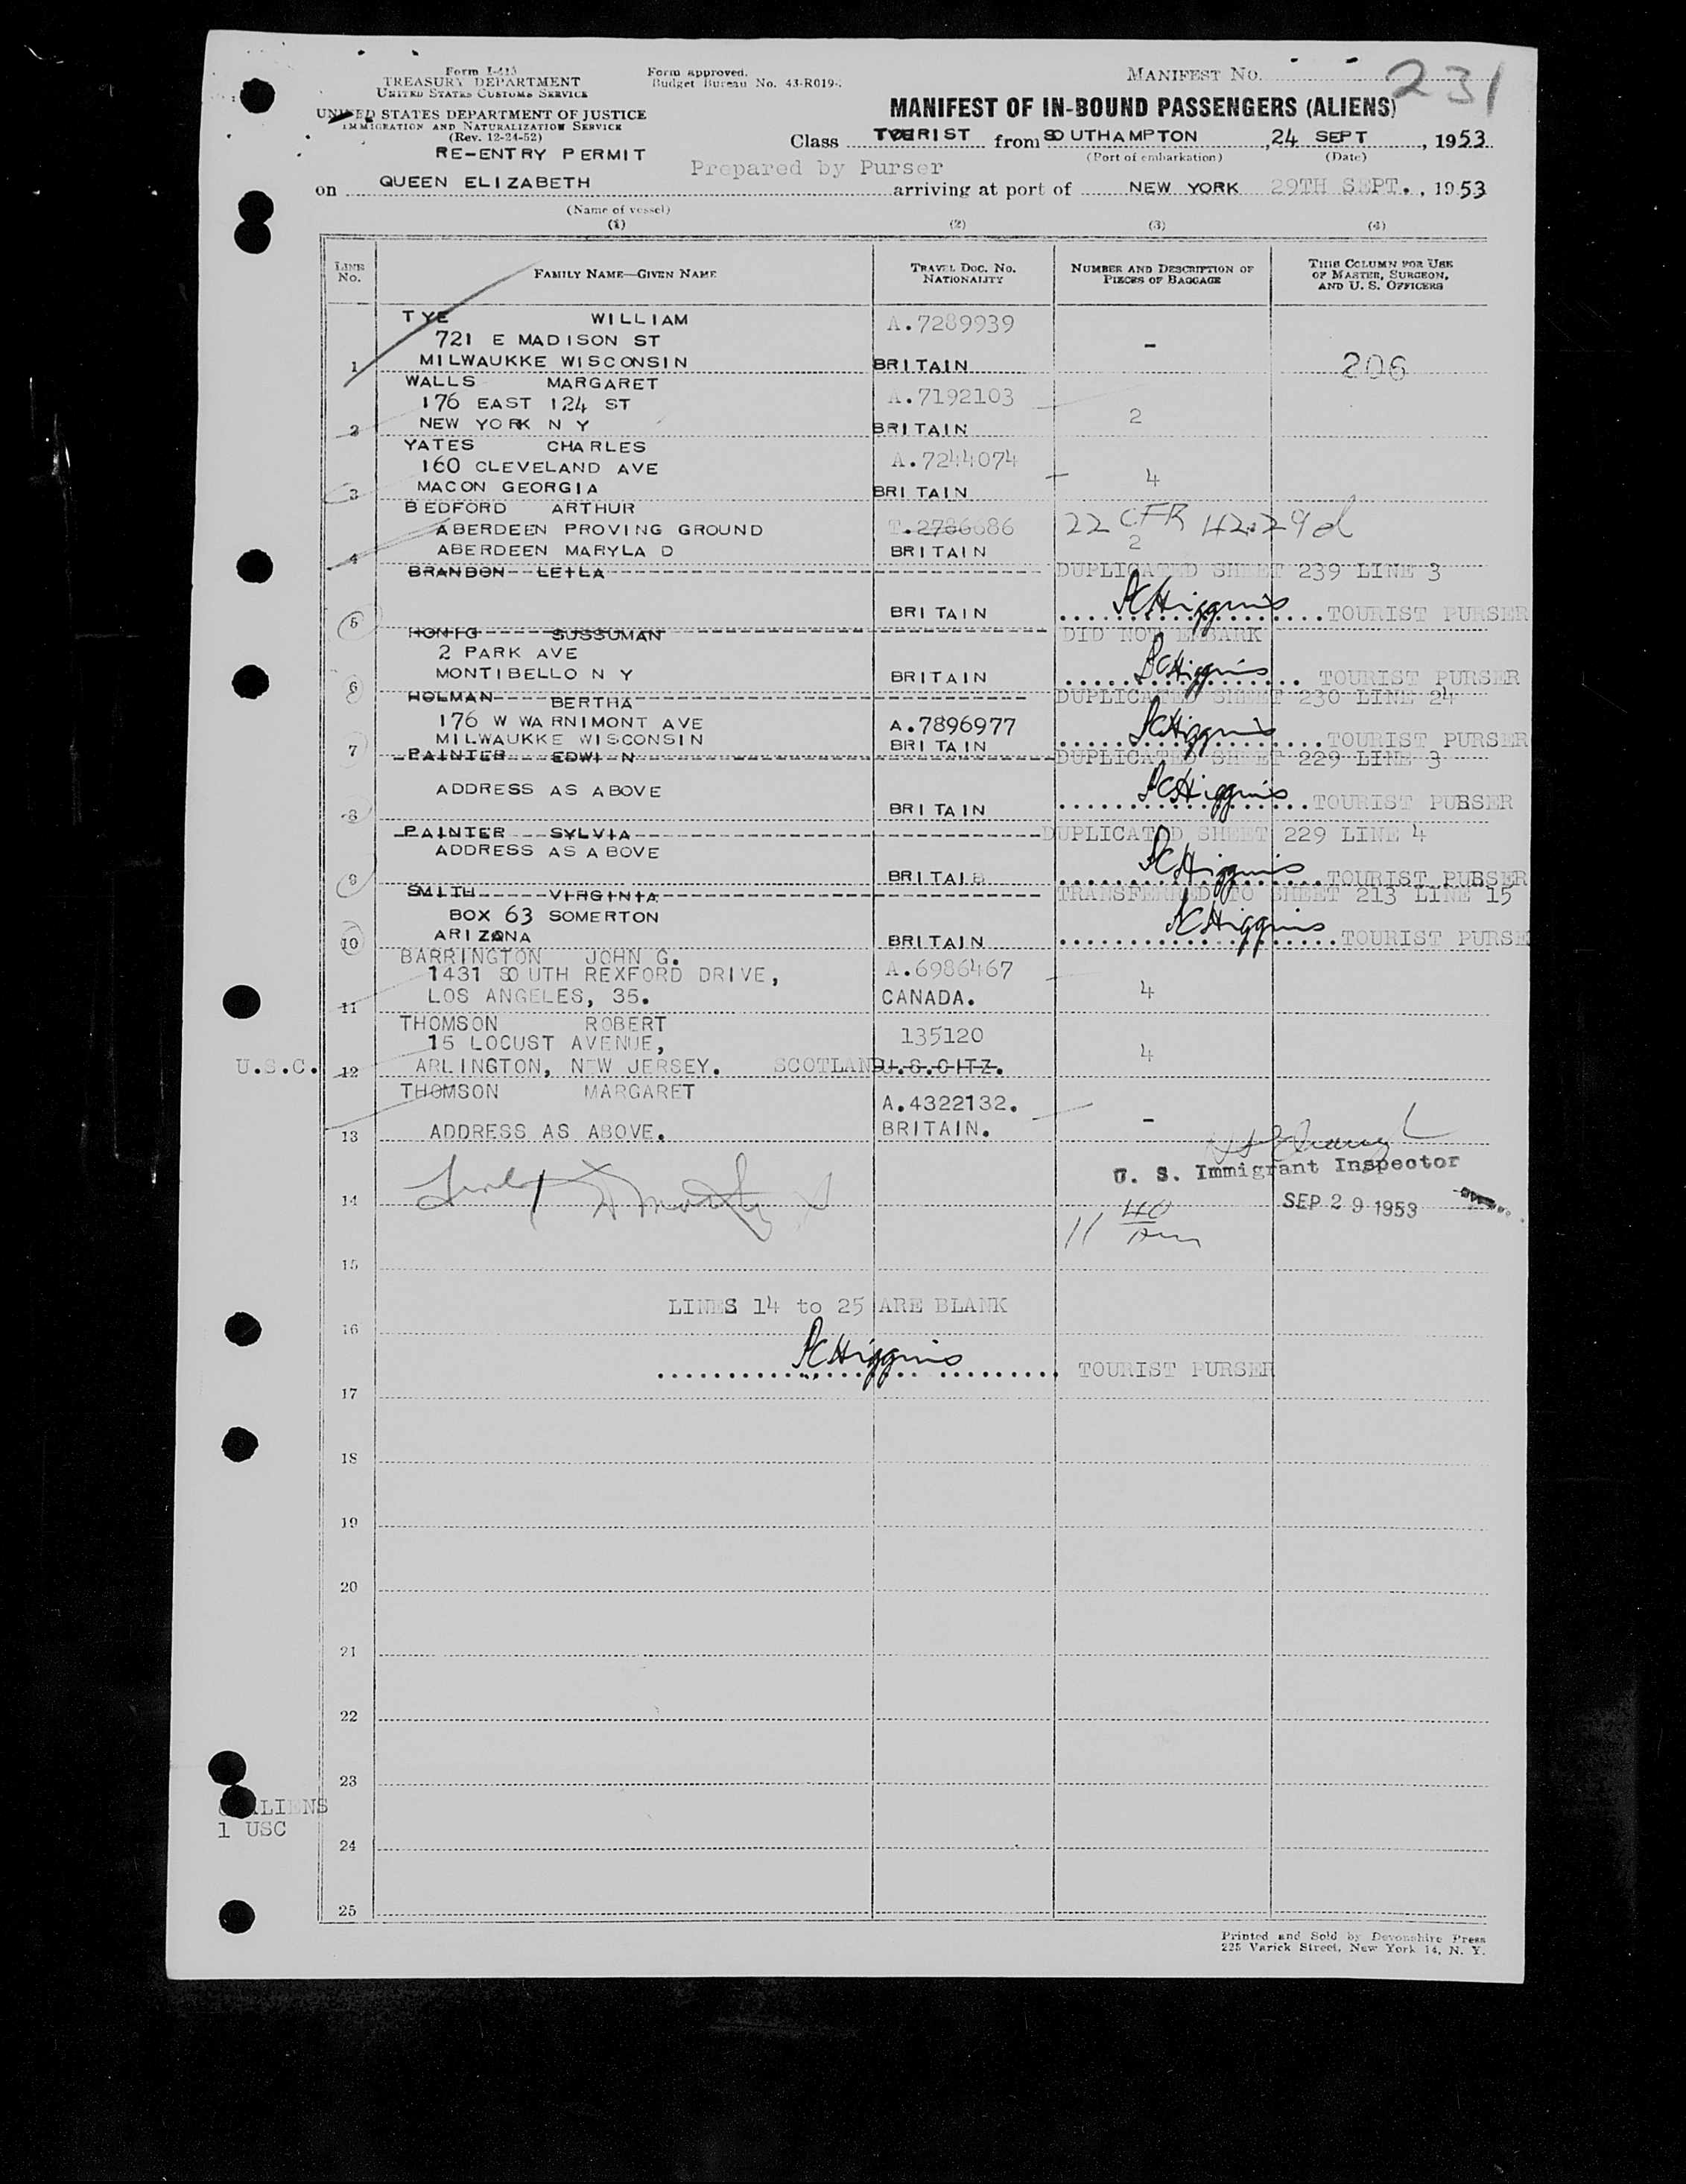 Form I-415
TREASURY DEPARTMENT
UNITED STATES CUSTOMS SERVICE
UNITED STATES DEPARTMENT OF JUSTICE
IMMIGRATION AND NATURALIZATION SERVICE
(Rev. 12-24-52)
RE-ENTRY PERMIT
Form approved.
Budget Bureau No. 43-R019-
MANIFEST No. 231
MANIFEST OF IN-BOUND PASSENGERS (ALIENS)
Class TOURIST from SOUTHAMPTON, 24 SEPT, 1953
(Port of embarkation) (Date)
Prepared by Purser
on QUEEN ELIZABETH arriving at port of NEW YORK 29TH SEPT., 1953
(Name of vessel)
(1) (2) (3) (4)
LINE No. FAMILY NAME—GIVEN NAME TRAVEL DOC. NO. NATIONALITY NUMBER AND DESCRIPTION OF PIECES OF BAGGAGE THIS COLUMN FOR USE OF MASTER, SURGEON, AND U. S. OFFICERS
TYE WILLIAM A.7289939
721 E MADISON ST -
1 MILWAUKKE WISCONSIN BRITAIN 206
WALLS MARGARET A.7192103
176 EAST 124 ST 2
2 NEW YORK N Y BRITAIN
YATES CHARLES A.7244074
160 CLEVELAND AVE 4
3 MACON GEORGIA BRITAIN
BEDFORD ARTHUR
ABERDEEN PROVING GROUND T.2786686 22 CFR 42.29d
4 ABERDEEN MARYLA D BRITAIN 2
BRANDON LEILA DUPLICATED SHEET 239 LINE 3
5 BRITAIN PCHiggins TOURIST PURSER
HONIG SUSSUMAN DID NOT EMBARK
2 PARK AVE
6 MONTIBELLO N Y BRITAIN PCHiggins TOURIST PURSER
HOLMAN BERTHA DUPLICATED SHEET 230 LINE 24
176 W WARNIMONT AVE A.7896977
7 MILWAUKKE WISCONSIN BRITAIN PCHiggins TOURIST PURSER
PAINTER EDWIN DUPLICATED SHEET 229 LINE 3
ADDRESS AS ABOVE
8 BRITAIN PCHiggins TOURIST PURSER
PAINTER SYLVIA DUPLICATED SHEET 229 LINE 4
ADDRESS AS ABOVE
9 BRITAIN PCHiggins TOURIST PURSER
SMITH VIRGINIA TRANSFERRED TO SHEET 213 LINE 15
BOX 63 SOMERTON
10 ARIZONA BRITAIN PCHiggins TOURIST PURSE
BARRINGTON JOHN G.
1431 SOUTH REXFORD DRIVE, A.6986467
11 LOS ANGELES, 35. CANADA. 4
THOMSON ROBERT 135120
15 LOCUST AVENUE, 4
U.S.C. 12 ARLINGTON, NEW JERSEY. SCOTLAND U.S.CITZ.
THOMSON MARGARET A.4322132.
13 ADDRESS AS ABOVE. BRITAIN. -
U. S. Immigrant Inspector
14 SEP 29 1953
11 40 am
15
LINES 14 to 25 ARE BLANK
16
PCHiggins TOURIST PURSER
17
18
19
20
21
22
23
ALIENS
1 USC
24
25
Printed and Sold by Devonshire Press
225 Varick Street, New York 14, N. Y.